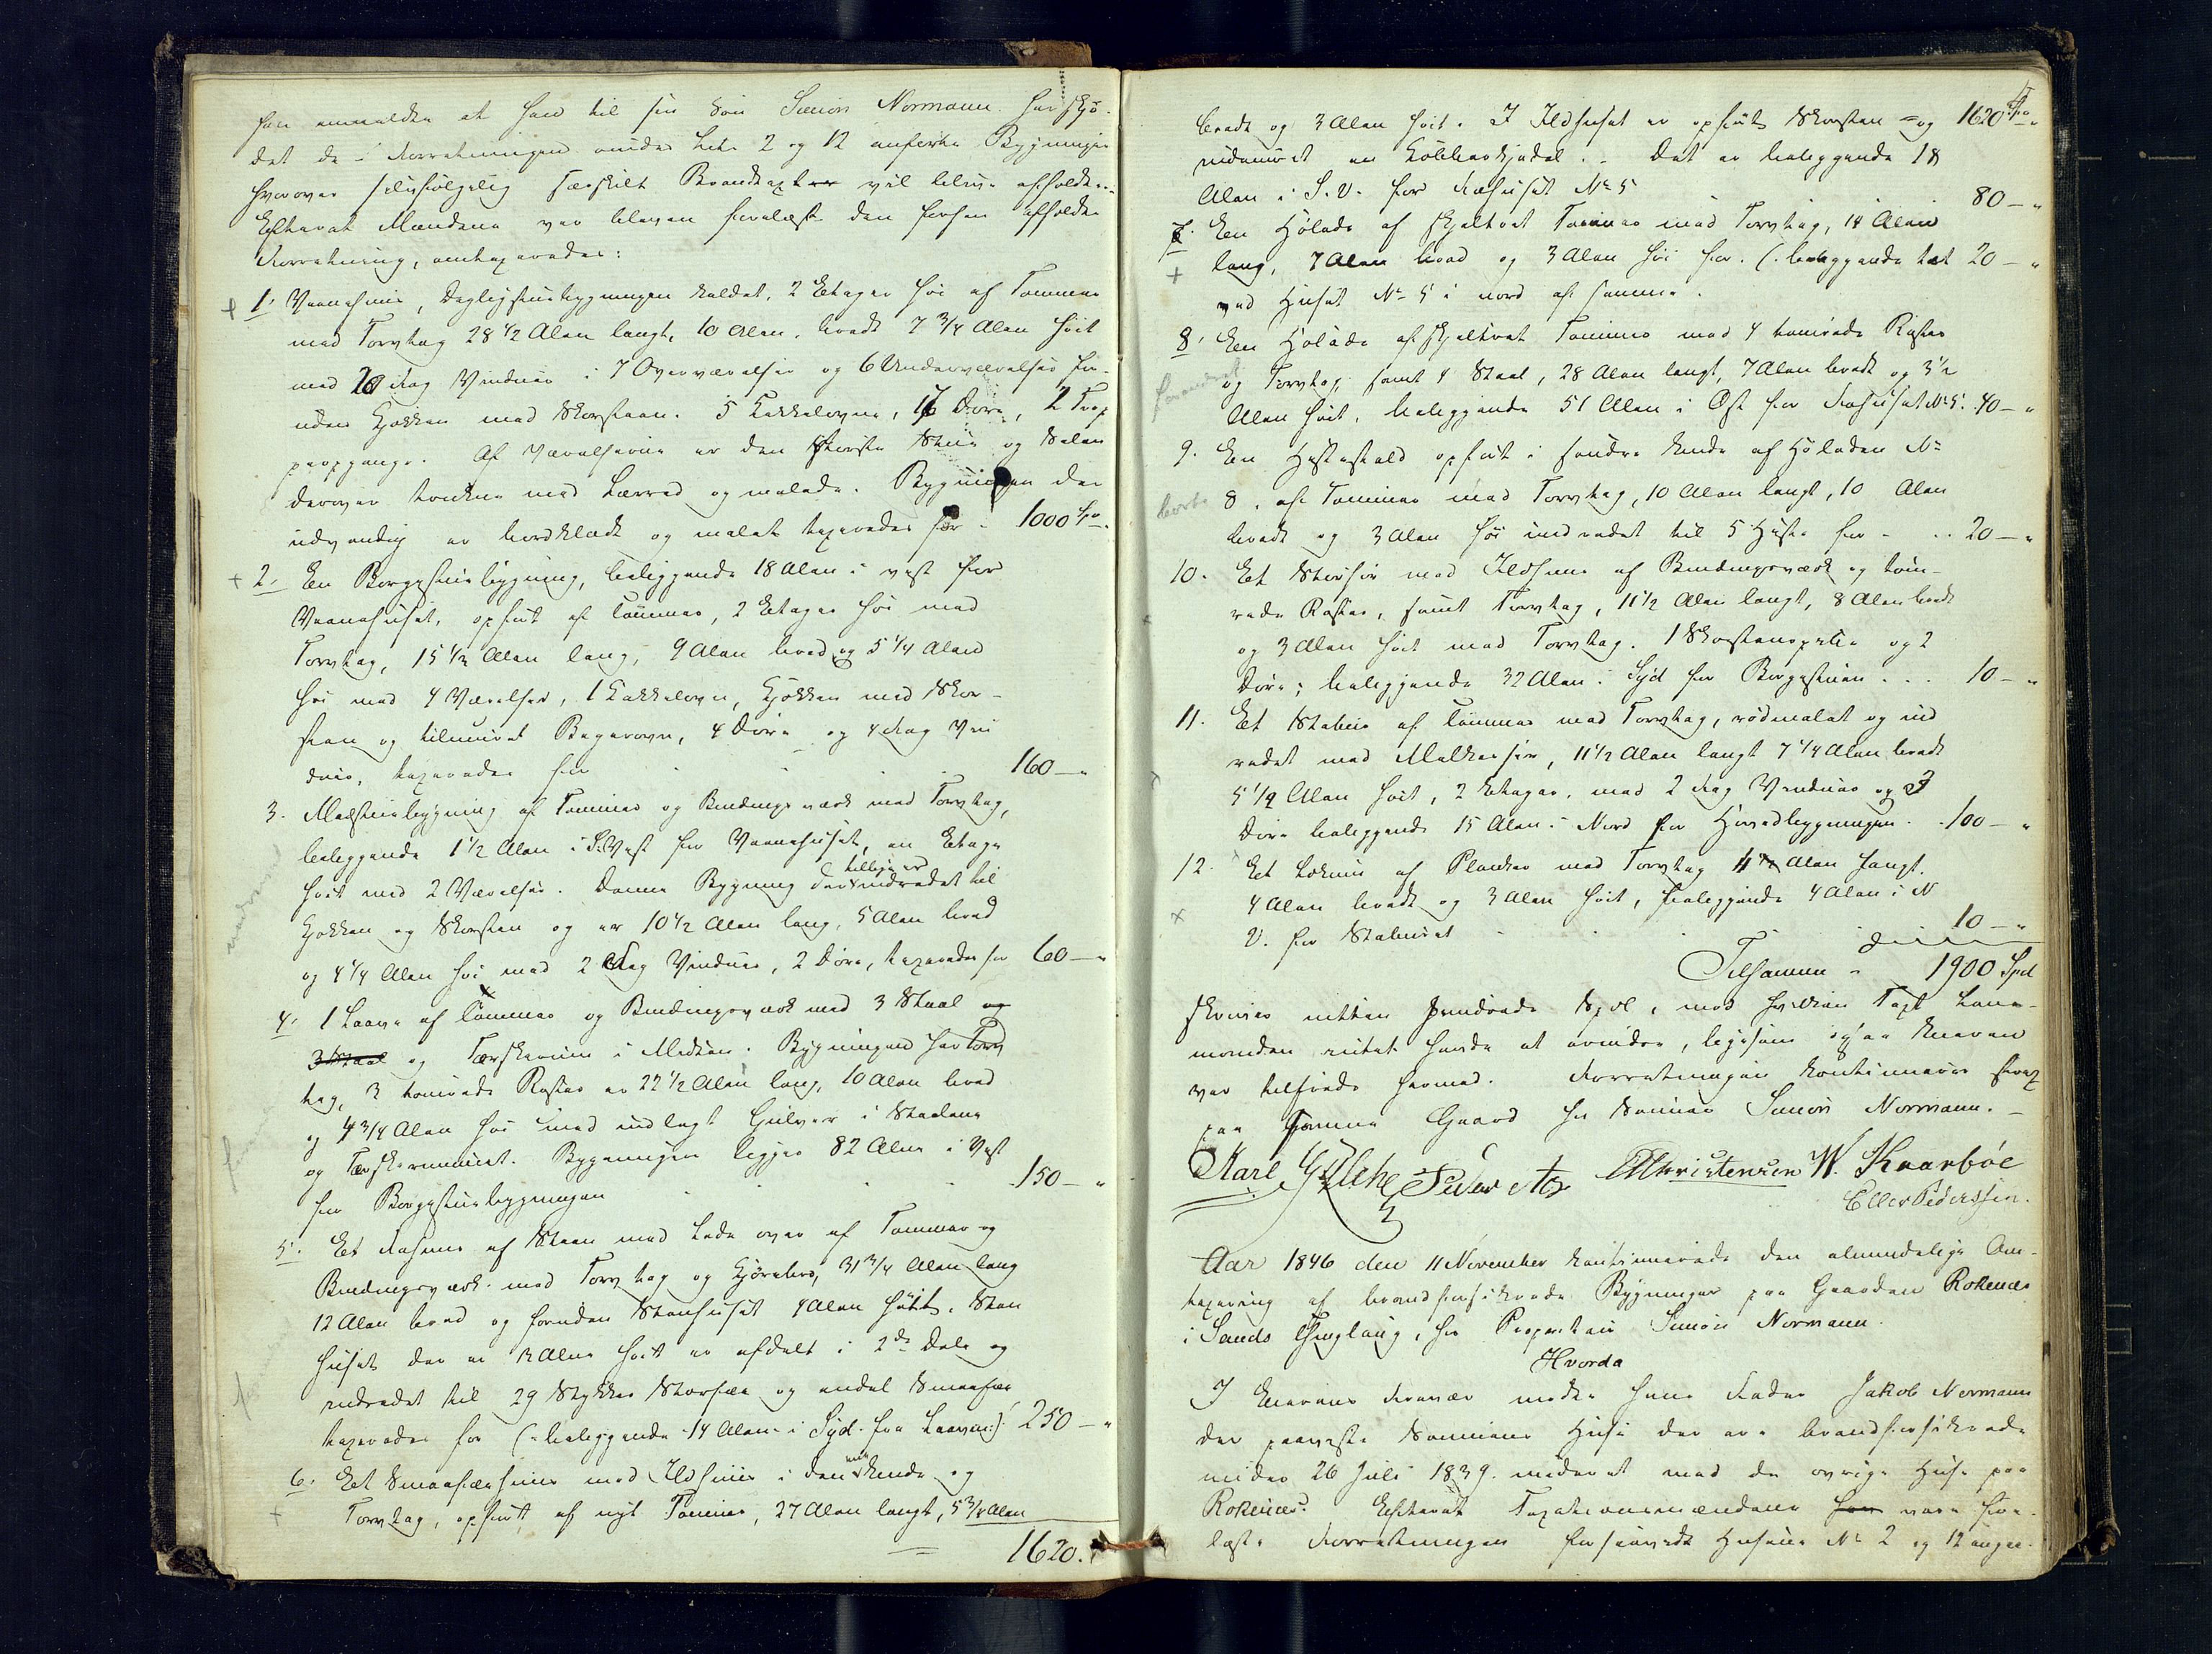 han anmeldte at han til sin Søn Simon Normann har skjø-
det de i Forretningen under Litr 2 og 12 anførte Bygninger
hvorover følgelig særskilt Brandtaxt vil blive afholdt.
Efterat Mændene var bleven forelæst den forhen afholdte
Forretning, omtaxeredes:
1. Vaanehuus, Dagligstuebygningen kaldet, 2 Etager høi af Tømmer
med Torvtag 28 1/2 Alen langt, 10 Alen bredt 7 3/4 Alen høit
med 20 Fag Vinduer i 7 Overværelser og 6 Underværelser for-
uden Kjøkken med Skorsteen. 5 Kakkelovne, 17 Døre, 2 Trap
peopgange. Af Værelserne er den største Stue og Salen
derover trukne med Lærred og malede. Bygningen der
udvendig er bordklædt og malet taxeredes for - 1000 Spd.
2. En Borgestuebygning, beliggende 18 Alen i vest for
Vaanehuset, opført af Tømmer, 2 Etager høi med
Torvtag, 15 1/2 Alen lang, 9 Alen bred og 5 1/4 Alen
høi med 4 Værelser, 1 Kakkelovn, Kjøkken med Skor-
sten og tilmuret Bagerovn, 4 Døre og 4 Fag Vin
duer, taxeredes for 160 — "
3. Mælstuebygning af Tømmer og Bindingsværk med Torvtag,
beliggende 1 1/2 Alen i S. Vest for Vaanehuset, en Etage
høit med 2 Værelser. Denne Bygning der tillige er indredet til
Kjøkken og Skorsten og er 10 1/2 Alen lang, 5 Alen bred
og 4 1/4 Alen høi med 2 Fag Vinduer, 2 Døre, taxeredes for 60 — "
4. 1 Laave af Tømmer og Bindingsværk med 3 Staal og
3 Staal og Tærskerum i Midten. Bygningen har Torv
tag, 3 tømrede Røster er 22 1/2 Alen lang, 10 Alen bred
og 4 3/4 Alen høi med indlagt Gulver i Staalene
og Tærskerummet. Bygningen ligger 82 Alen i Vest
for Borgestuebygningen 150 — "
5. Et Fæhuus af Steen med Lade over af Tømmer og
Bindingsværk med Torvtag og Kjørebro, 31 3/4 Alen lang
12 Alen bred og foruden Steenhuset 4 Alen høit. Sten
huset der er 3 Alen høit er afdelt i 2de Dele og
indredet til 29 Stykker Storfæ og endel Smaafæ
taxeredes for (: beliggende 14 Alen i Syd fra Laaven :) 250 — "
6. Et Smaafæhuus med Ildhuus i den ene Ende og
Torvtag, opført af nyt Tømmer, 27 Alen langt, 5 3/4 Alen
1620.
bredt og 3 Alen høit. I Ildhuset er opført Skorsten og 1620 Spd "
indmuret en Kobberkjedel. - Det er beliggende 18
Alen i S.V. for Fæhuset No 5 80 — "
7. En Hølade af skjeltret Tømmer med Torvtag, 14 Alen
lang, 7 Alen bred og 3 Alen høi for (: beliggende tæt 20 — "
ved Huset No 5 i nord af samme.
8. En Hølade af skjeltret Tømmer med 4 tømrede Røster
og Torvtag samt 4 Staal, 28 Alen langt, 7 Alen bredt og 3 1/2
Alen høit, beliggende 51 Alen i Øst for Fæhuset No 5. 40 — "
9. En Hestestald opført i søndre Ende af Høladen No
borte 8. af Tømmer med Torvtag, 10 Alen langt, 10 Alen
bredt og 3 Alen høi indredet til 5 Heste for - 20 — "
10. Et Skorhuus med Ildhuus af Bindingsværk og tøm-
rede Røster, samt Torvtag, 11 1/2 Alen langt, 8 Alen bredt
og 3 Alen høit med Torvtag. 1 Skorstenspibe og 2
Døre; beliggende 32 Alen i Syd for Borgestuen ... 10 — "
11. Et Stabuur af Tømmer med Torvtag, rødmalet og ind
redet med Melkebur, 11 1/2 Alen langt 7 1/4 Alen bredt
5 1/4 Alen høit, 2 Etager, med 2 Fag Vinduer og 3
Døre beliggende 15 Alen i Nord for Hovedbygningen. 100 — "
12. Et Lokum af Planker med Torvtag 4 Alen langt.
4 Alen bredt og 3 Alen høit, beliggende 4 Alen i N
V. for Staburet 10 — "
Tilsammen - 1900 Spd
skriver nitten hundrede Spdl, mod hvilken Taxt Lens-
manden intet havde at erindre, ligesom ogsaa Eieren
var tilfreds hermed. Forretningen kontinueres strax
paa samme Gaard hos Sønnen Simon Normann. —
Karl Peder CChristensen W. Kaarbøe
Eller Pederssen.
Aar 1846 den 11 November kontinuerede den almindelige Om-
taxering af brandforsikrede Bygninger paa Gaarden Rokenæs
i Sands Thinglaug, hos Proprietair Simon Normann.
Hvorda
I Eierens Fravær mødte hans Fader Jakob Normann
der paaviste Sønnens Huse der ere brandforsikrede
under 26 Juli 1839. inderet med de øvrige Huse paa
Rokenæs. Efterat Taxationsmændene vare fore-
læste Forretningen forsaavidt Husene No 2 og 12 angaa-